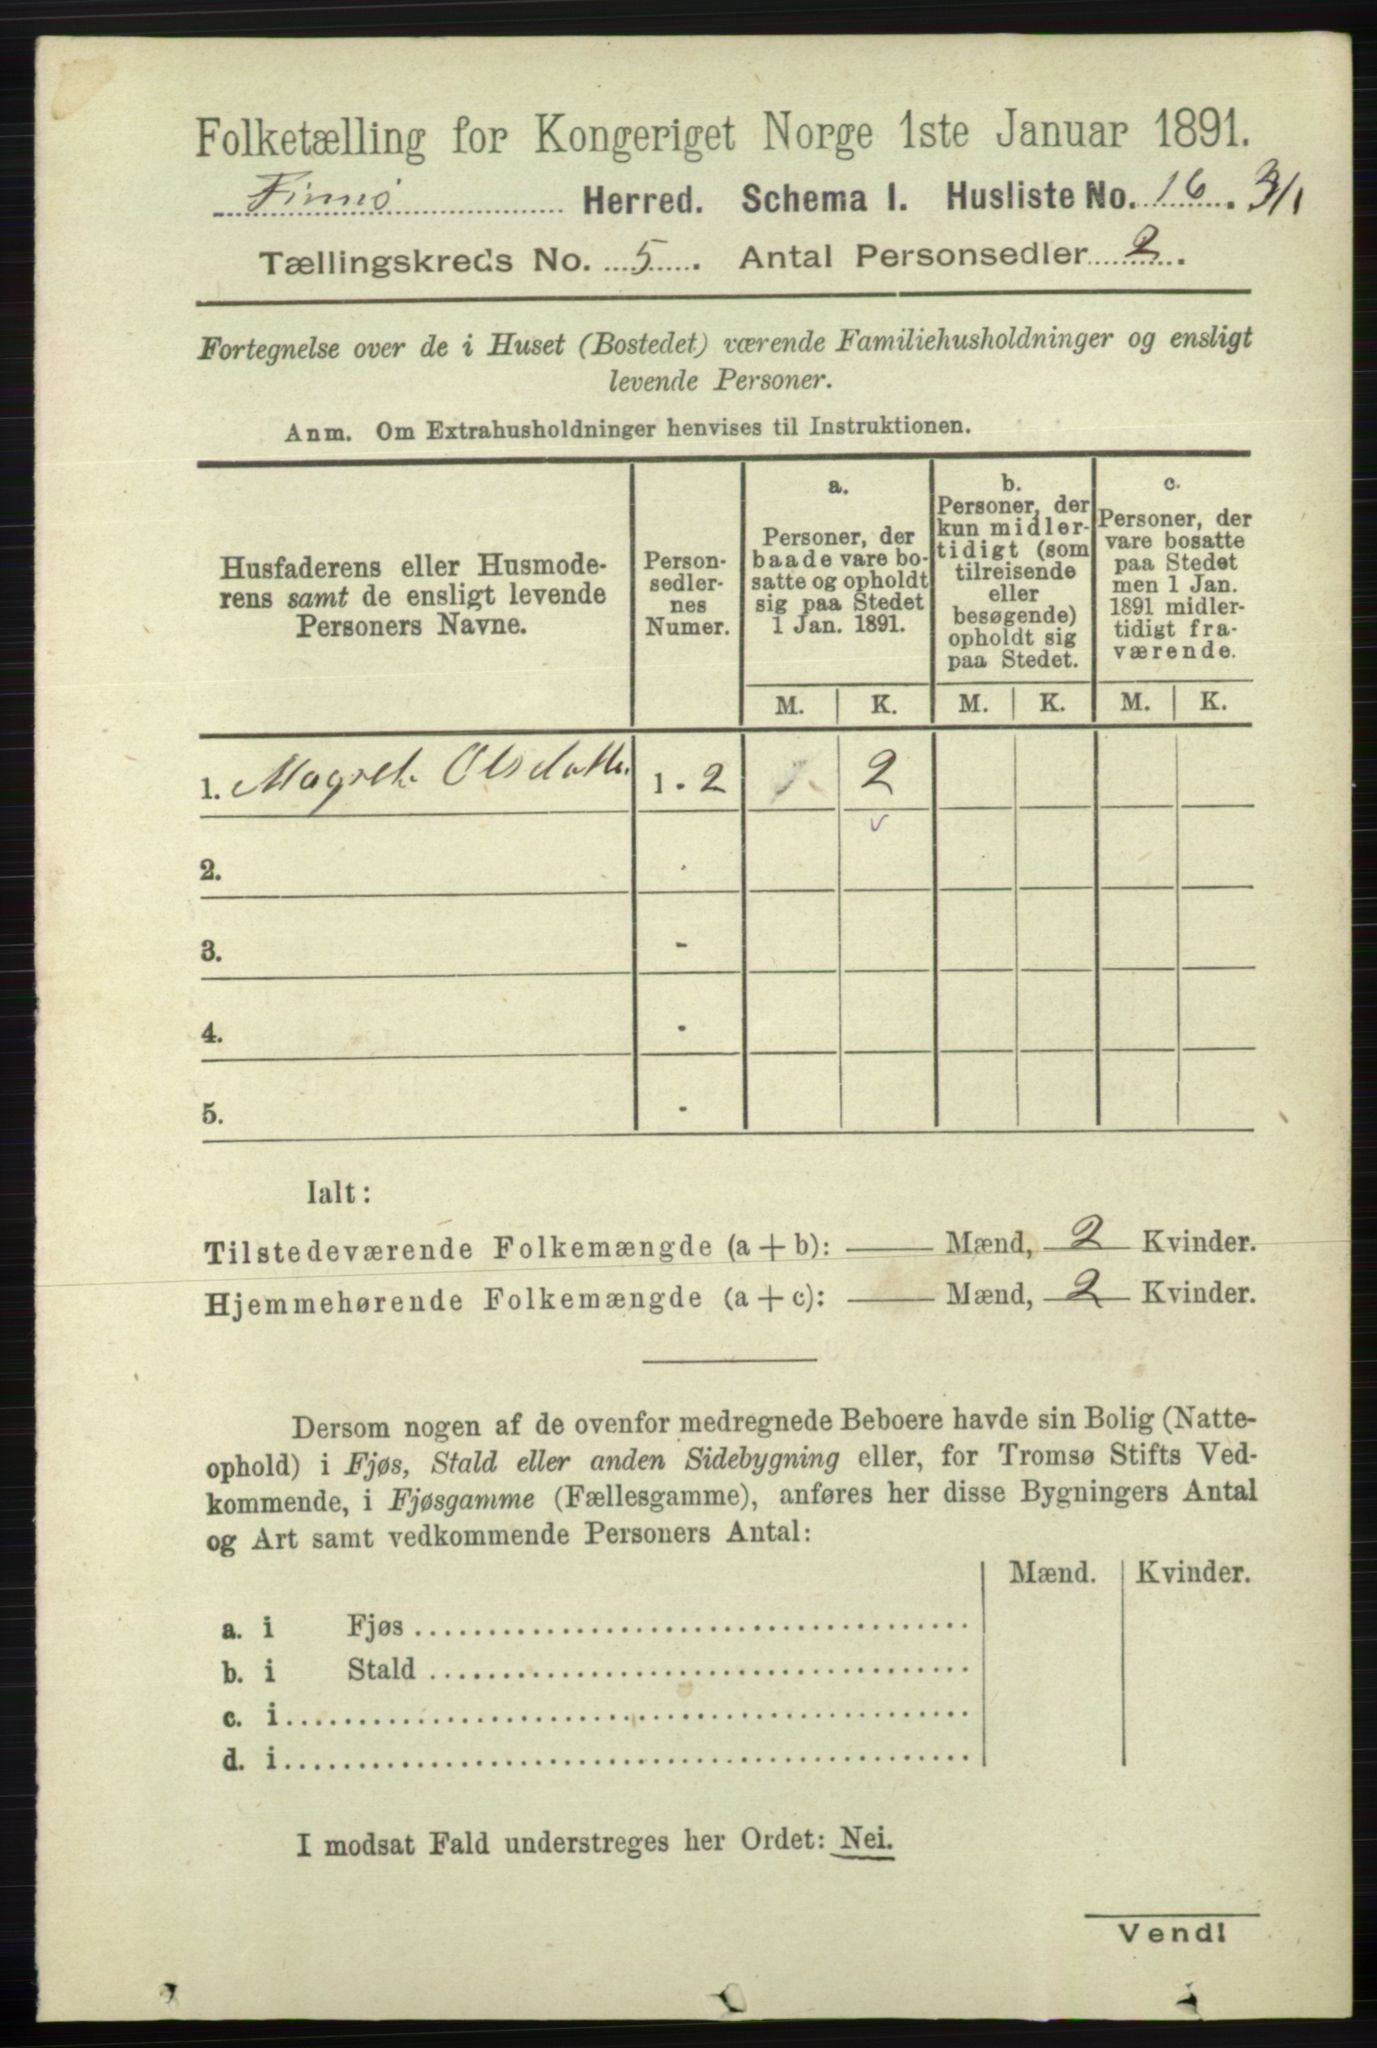 Folketælling for Kongeriget Norge 1ste Januar 1891.
Finnø Herred. Schema I. Husliste No. 16. 3/1
Tællingskreds No. 5. Antal Personsedler 2.
Fortegnelse over de i Huset (Bostedet) værende Familiehusholdninger og ensligt
levende Personer.
Anm. Om Extrahusholdninger henvises til Instruktionen.
Husfaderens eller Husmode-
rens samt de ensligt levende
Personers Navne.
Person-
sedler-
nes
Numer.
a.
Personer, der
baade vare bo-
satte og opholdt
sig paa Stedet
1 Jan. 1891.
b.
Personer, der
kun midler-
tidigt (som
tilreisende
eller
besøgende)
opholdt sig
paa Stedet.
c.
Personer, der
vare bosatte
paa Stedet
men 1 Jan.
1891 midler-
tidigt fra-
værende.
M. K. M. K. M. K.
1. Magreta Olsdatter 1 - 2 2
2. -
3. -
4. -
5. -
Ialt:
Tilstedeværende Folkemængde (a + b): — Mænd, 2 Kvinder.
Hjemmehørende Folkemængde (a + c): — Mænd, 2 Kvinder.
Dersom nogen af de ovenfor medregnede Beboere havde sin Bolig (Natte-
ophold) i Fjøs, Stald eller anden Sidebygning eller, for Tromsø Stifts Ved-
kommende, i Fjøsgamme (Fællesgamme), anføres her disse Bygningers Antal
og Art samt vedkommende Personers Antal:
Mænd. Kvinder.
a. i Fjøs
b. i Stald
c. i
d. i
I modsat Fald understreges her Ordet: Nei.
Vend!